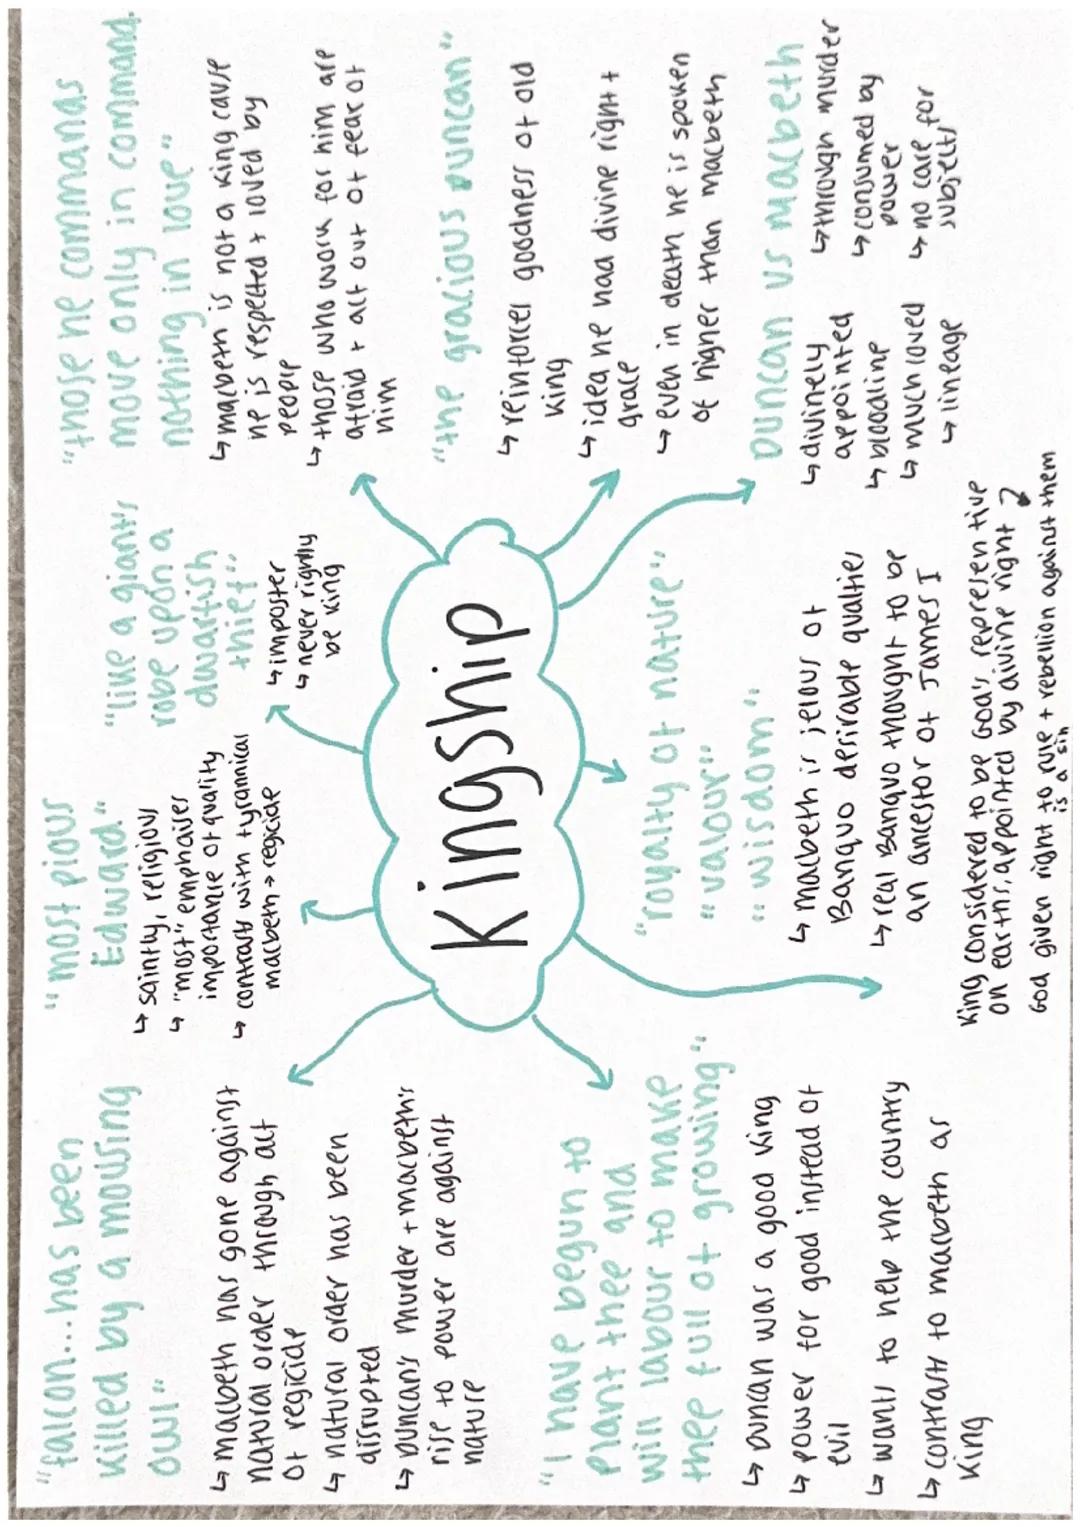 "falcon...has been
killed by a mousing
owl"
↳ macbeth has gone against
natural order through act
of regicide
↳ natural order has been
disrupted
↳ Duncan's murder + macbeth's
rise to power are against
nature
"most pious
Edward"
↳ saintly, religious
↳ "most" emphaises
importance of quality
↳ contrast with tyrannical
macbeth → regicide
"like a giant's
robe upon a
dwarfish
thief"
↳ imposter
↳ never rightly
be king
"those he commands
move only in command,
nothing in love"
↳ macbeth is not a king cause
he is respected + loved by
people
↳ those who work for him are
afraid + act out of fear of
him
Kingship
"the gracious Duncan"
↳ reinforces goodness of old
king
↳ idea he had divine right +
grace
↳ even in death he is spoken
of higher than macbeth
"I have begun to
plant thee and
will labour to make
thee full of growing"
↳ Duncan was a good king
↳ power for good instead of
evil
↳ wants to help the country
↳ contrasts to macbeth as
king
"royalty of nature"
"valour"
"wisdom"
↳ macbeth is jelous of
Banquo desirable qualties
↳ real Banquo thought to be
an ancestor of James I
King considered to be God's represen tive
on earths, appointed by divine right ↴
God given right to rule + rebellion against them
is a sin
Duncan vs macbeth
↳ divinely
appointed
↳ bloodline
↳ much loved
↳ lineage
↳ through murder
↳ consumed by
power
↳ no care for
subjects